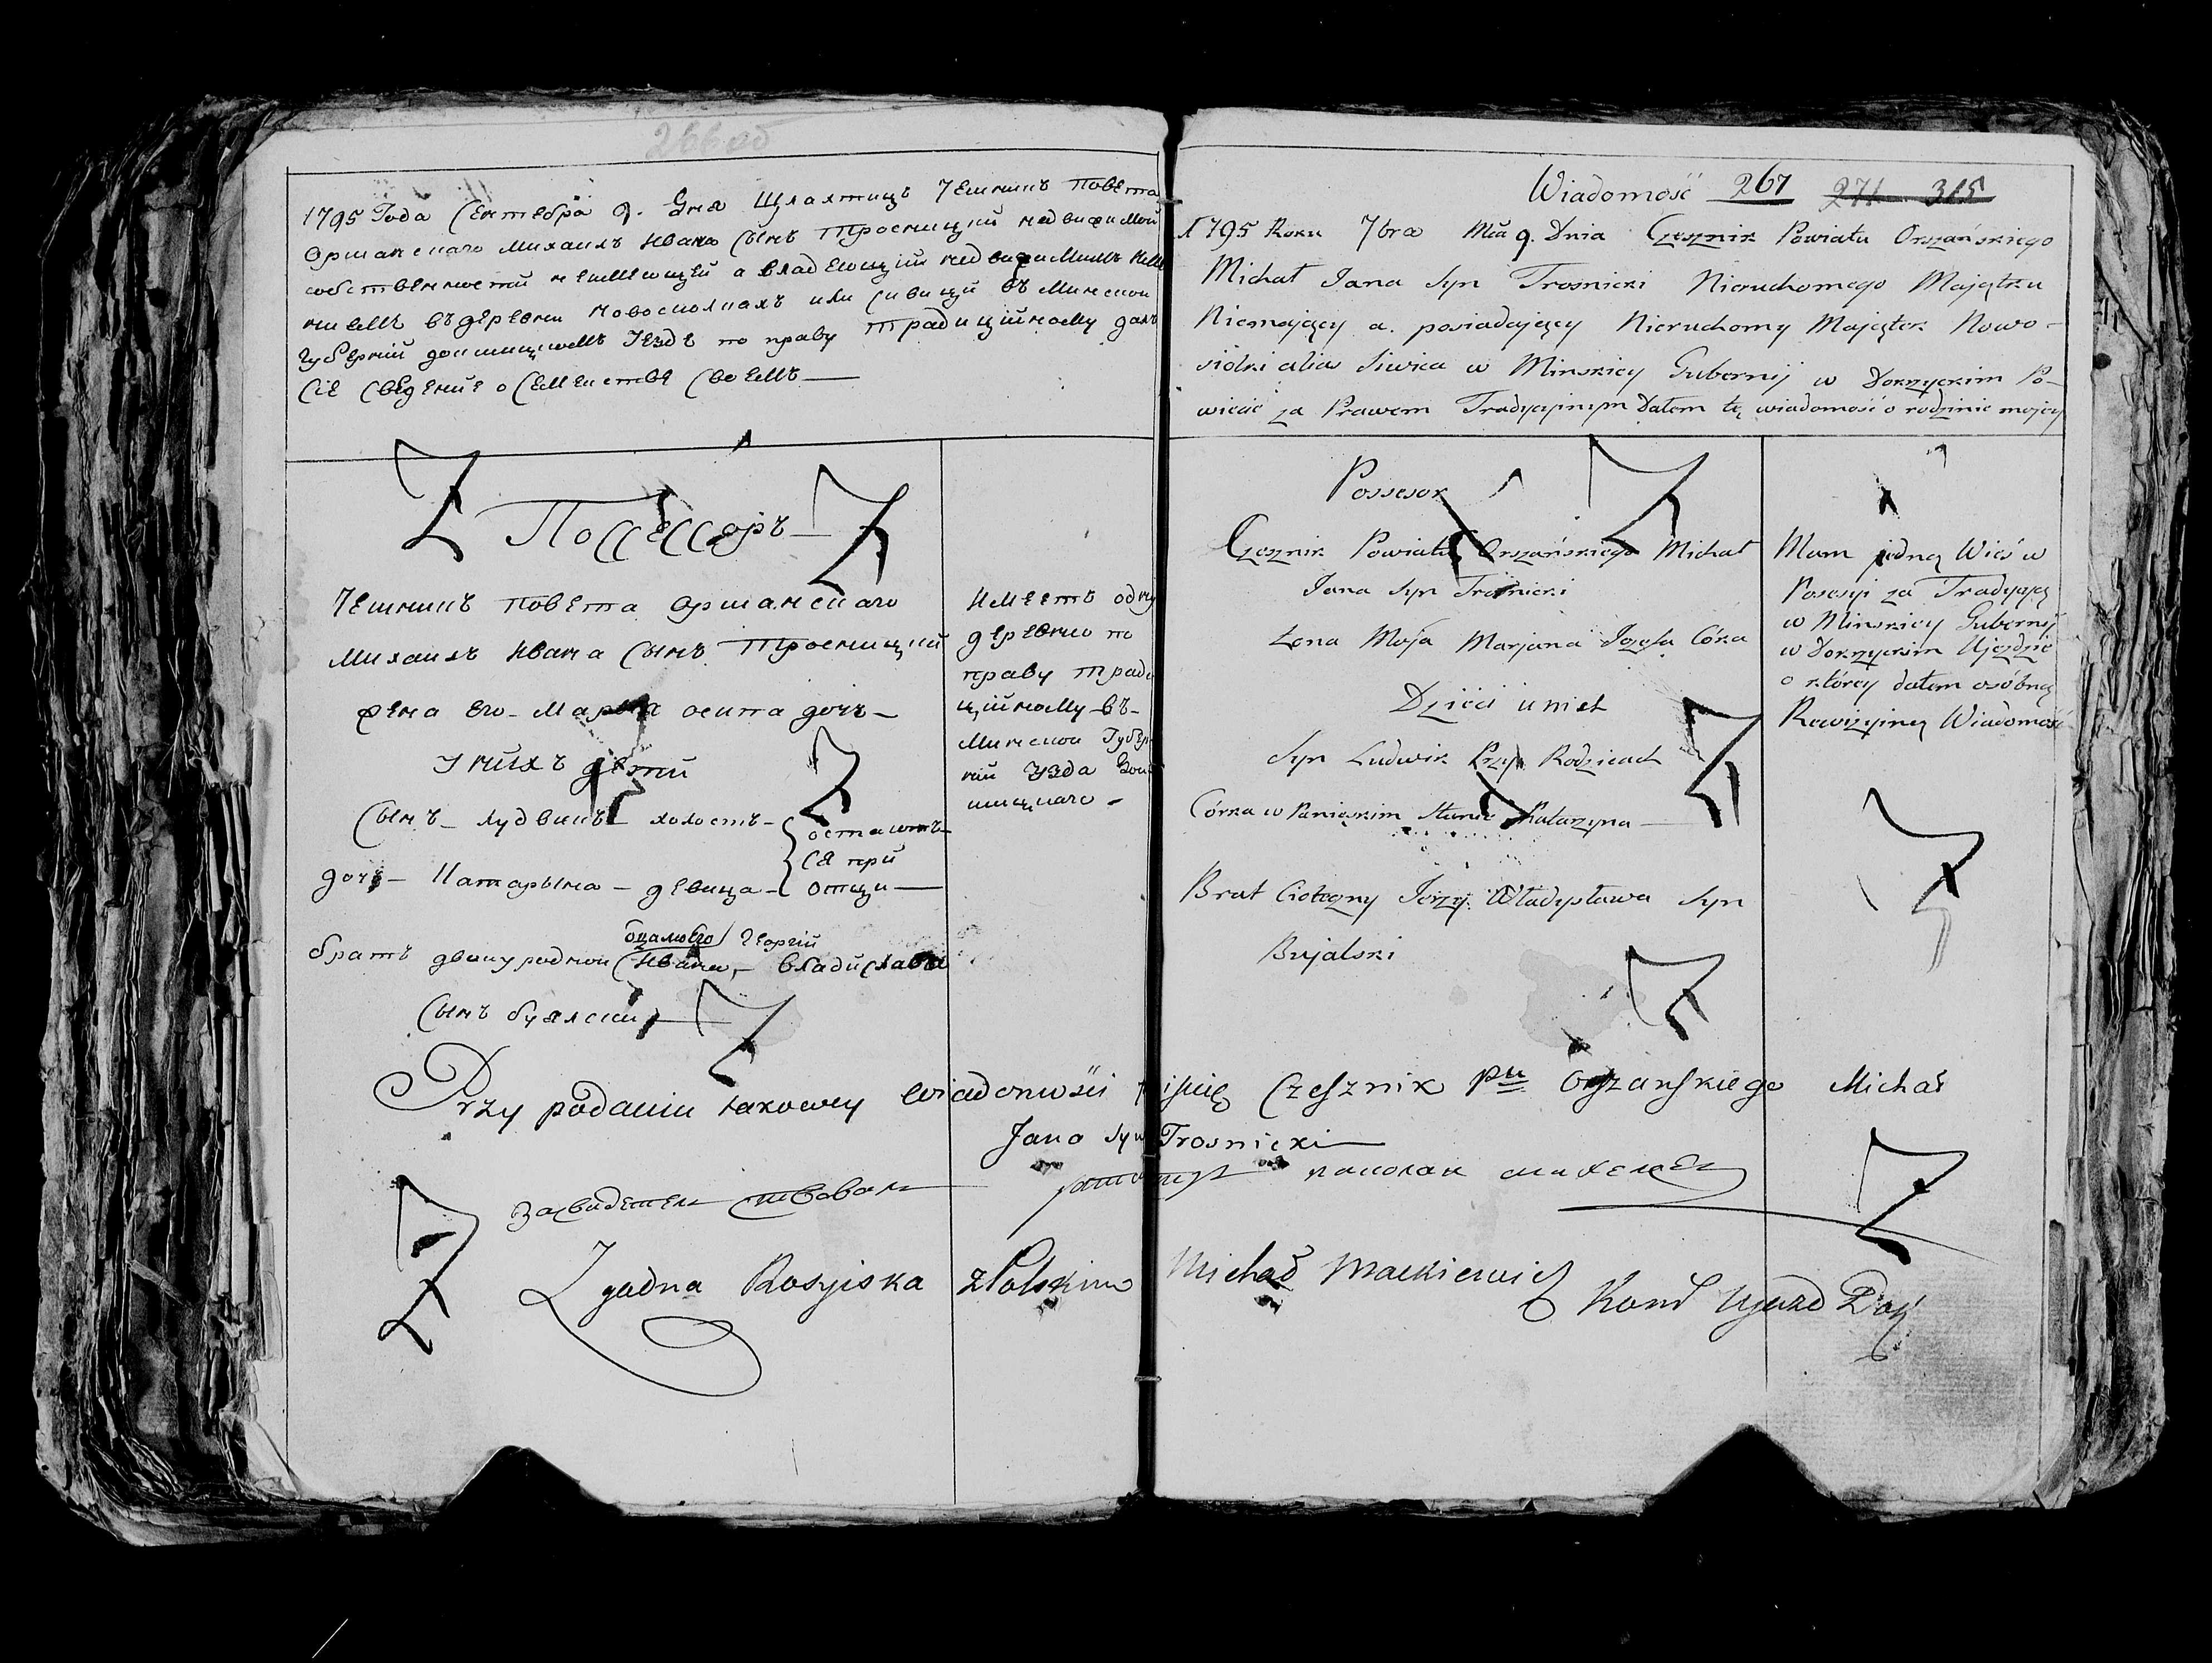 266об
1795 Года Сентебра 9. Дня Шляхтицъ Чешникъ Повета
Оршанскаго Михаилъ Ивана Сынъ Тросницкий недвижимой
собственности неимеющей а владеющий недвижимымъ
въ деревни Новосиолкахъ или Сивици въ Минской
Губерний докшицкомъ Уезде по праву традицийному далъ
Сie сведение о Семействе Своемъ
Поссессоръ
Чешникъ Повета Оршанскаго
Михаилъ Ивана Сынъ Тросницкий
жена его Осипа дочь
У нихъ дети
Сынъ Лудвикъ холостъ
остаютъ
дочь Катарына девица
ся при
отци
Георгiй
братъ двоюродной Ивана Владислава
Сынъ буялский
Имеетъ одну
деревню по
праву тради
цийному въ
Минской Губер
нии уезда Док
шицкаго
Wiadomość 267 271 315
1795 Roku 7bra Mca 9. Dnia Czesznik Powiatu Orszańskiego
Michał Jana Syn Trosnicki Nieruchomego Majątku
Niemający a. posiadający Nieruchomy Majątek Nowo-
siołki alias Siwica w Minskiey Gubernij w Dokszyckim Po-
wiecie za Prawem Tradycyinym Dałem tę wiadomość o rodzinie mojey
Possesor
Czesznik Powiatu Orszańskiego Michał
Jana Syn Trosnicki
Żona Moja Marjana Jozefa Córka
Dzieci u nich
Syn Ludwik Przy Rodzicach
Córka w Panieńskim Stanie Katarzyna
Brat Cioteczny Jerzy Władysława Syn
Bujalski
Mam jedną Wieś w
Posesyi za Tradycyą
w Minskiey Gubernij
w Dokszyckim Ujezdzie
o ktorey dałem osóbną
Rewizyiną Wiadomość
Przy podaniu takowey wiadomości pisuię Czesznik Ptu Orszanskiego Michał
Jana Syn Trosnicki
Засвидетельствовалъ
Zgadna Rosyiska z Polskim Michał Mackiewicz